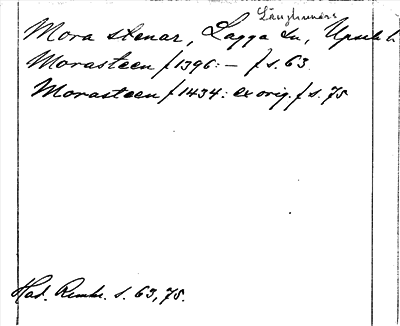 Långhundra
Mora stenar, Lagga sn, Upsala l.
Morasteen / 1396: – / s. 63
Morasteen / 1434: ex orig. / s. 75
Had. Rimkr. s. 63, 75.